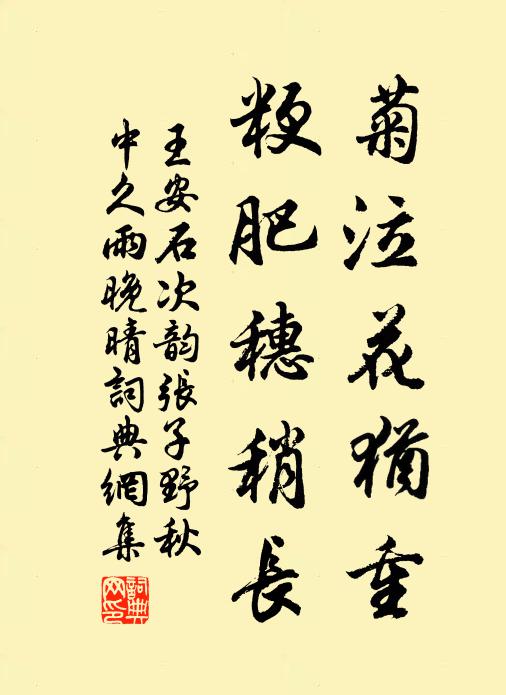 菊泣花猶重
粳肥穗稍長
王安石次韵張子野秋
中久雨晚晴詞典網集
詞典网印